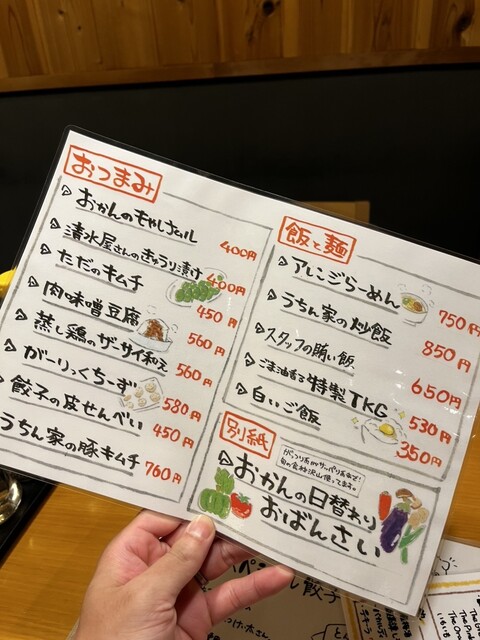 おつまみ
おかんのもやしナムル 400円
清水屋さんのきゅうり漬け 400円
ただのキムチ 450円
肉味噌豆腐 560円
蒸し鶏のザーサイ和え 560円
がーりっくちーず 580円
餃子の皮せんべい 450円
うちん家の豚キムチ 760円
飯と麺
アレンジらーめん 750円
うちん家の炒飯 850円
スタッフの賄い飯、 650円
ごま油香る特製TKG 530円
白いご飯 350円
別紙
おかんの日替わり
おばんざい
餃子